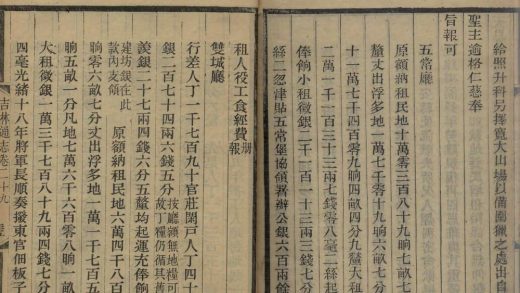 給照升科另擇寬大山場以備圍獵之處出自
聖主逾格仁慈奉
旨報可
五常廳
原額納租民地十萬零三百八十九晌七畝七分
釐丈出浮多地一萬七千零十九晌六畝七分
十一萬七千四百零九晌四畝四分九釐大租
二萬一千一百三十三兩七錢零八毫二絲起
俸餉小租徵銀二千一百一十三兩三錢七分
絲二忽津貼五常堡協領署辦公銀六百兩餘
租人役工食經費報册
雙城廳
行差人丁一千七百九十官莊閒戶人丁四十
銀二百七十四兩六錢五分按廳領無地糧可故丁糧仍循其舊
羨銀二十七兩四錢六分五釐均起運充俸餉
建坊銀在此款內支領原額納租民地六萬四千八百
晌零六畝七分丈出浮多地一萬一千七百五
晌五畝一分凡地七萬六千六百零八晌一畝
大租徵銀一萬三千七百八十九兩四錢七分
四毫光緒十八年將軍長順奏撥東官佃板子
吉林通志卷二十九